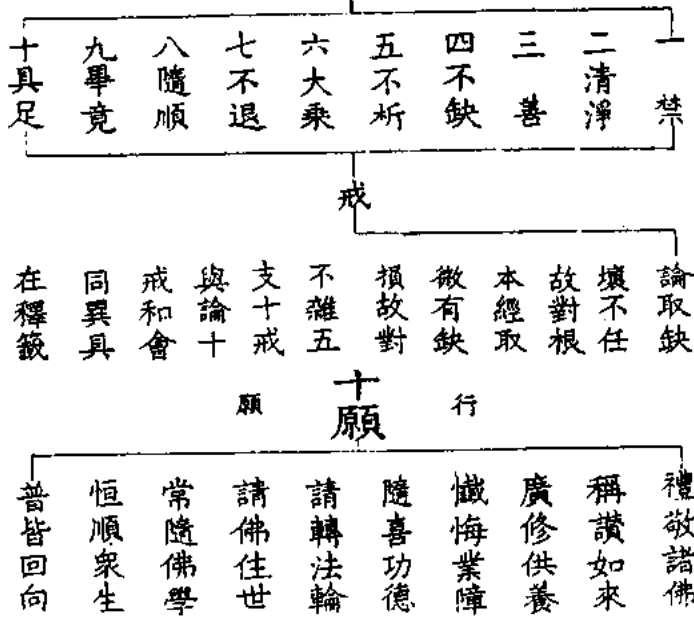 一禁
二清淨
三善
四不缺
五不析
六大乘
七不退
八隨順
九畢竟
十具足
戒
論取缺
壞不任
故對根
本經取
微有缺
損故對
不雜五
支十戒
與論十
戒和會
同異具
在釋籤
行
十願
願
禮敬諸佛
稱讚如來
廣修供養
懺悔業障
隨喜功德
請轉法輪
請佛住世
常隨佛學
恒順衆生
普皆回向